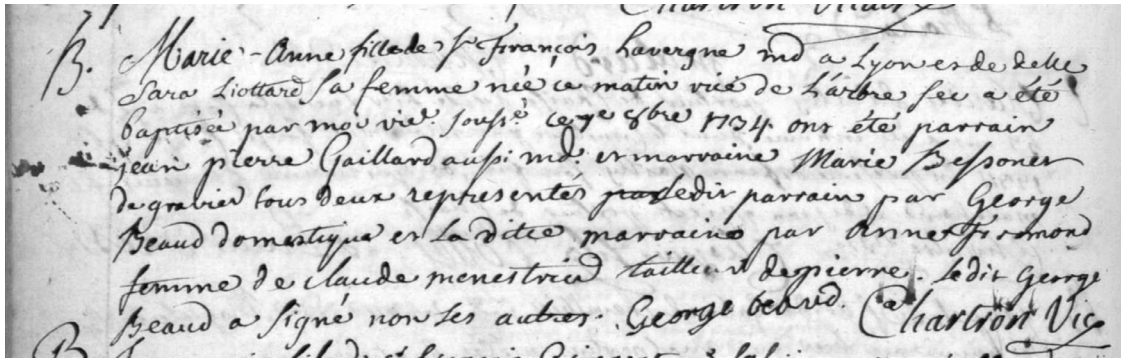 B. Marie-Anne fille de Sr françois Lavergne md a Lyon et de delle
Sara Liottard Sa femme née ce matin ruë de L'arbre sec a été
baptisée par moi vic. soussé ce 7e 8bre 1734 ont été parrain
jean pierre Gaillard aussi md. et marraine Marie Bessonet
de gravier tous deux représentés ledit parrain par George
Beaud domestique et La dite marraine par Anne
femme de claude menestrieu tailleur de pierre. ledit George
Beaud a signé non les autres. George beaud. Chartron Vic